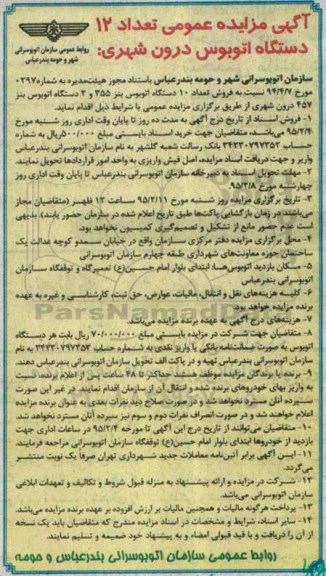 آگهی مزایده عمومی تعداد ۱۲
دستگاه اتوبوس درون شهری:
روابط عمومی سازمان اتوبوسرانی
شهر و حومه بندرعباس
سازمان اتوبوسرانی شهر و حومه بندرعباس باستناد مجوز هیئت‌مدیره به شماره ۰۲۹۷
مورخ ۹۴/۴/۷ نسبت به فروش تعداد ۱۰ دستگاه اتوبوس بنز ۳۵۵ و ۲ دستگاه اتوبوس بنز
۴۵۷ درون شهری از طریق برگزاری مزایده عمومی با شرایط ذیل اقدام نماید.
۱- فروش اسناد از تاریخ درج آگهی به مدت ده روز تا پایان وقت اداری روز شنبه مورخ
۹۵/۲/۴ می‌باشد، متقاضیان جهت خرید اسناد بایستی مبلغ ۵۰۰/۰۰۰ ریال به شماره
حساب ۳۴۲۳۰۷۹۷۳۵۲ بانک رسالت شعبه گلشهر به نام سازمان اتوبوسرانی بندرعباس
واریز و جهت دریافت اسناد مزایده، اصل فیش واریزی به واحد امور قراردادها تحویل نمایند.
۲- مهلت تحویل اسناد به دبیرخانه سازمان اتوبوسرانی بندرعباس تا پایان وقت اداری روز
چهارشنبه مورخ ۹۵/۲/۸.
۳- تاریخ برگزاری مزایده روز شنبه مورخ ۹۵/۲/۱۱ ساعت ۱۲ ظهر (متقاضیان مجاز
می‌باشند در زمان بازگشایی پاکت‌ها طبق تاریخ اعلام شده در سازمان حضور یابند). بدیهی
است عدم حضور مانع از تشکیل و تصمیم‌گیری کمیسیون نخواهد بود.
۴- محل برگزاری مزایده دفتر مرکزی سازمان واقع در خیابان سیدو کوچه عدالت یک
ساختمان حوزه معاونت‌های شهرداری طبقه چهارم سازمان اتوبوسرانی
۵- مکان بازدید اتوبوس‌ها: ابتدای بلوار امام حسین(ع) تعمیرگاه و توقفگاه سازمان
اتوبوسرانی بندرعباس
۶- کلیه هزینه‌های نقل و انتقال، مالیات، عوارض، حق ثبت، کارشناسی و غیره به عهده
برنده مزایده خواهد بود.
۷- هزینه‌های درج آگهی به عهده برنده مزایده می‌باشد.
۸- متقاضیان جهت شرکت در مزایده بایستی مبلغ ۷۰/۰۰۰/۰۰۰ ریال بابت هر دستگاه
اتوبوس به صورت ضمانت‌نامه بانکی یا واریز نقدی به شماره حساب ۳۴۲۳۰۷۹۷۳۵۲ به نام
سازمان اتوبوسرانی بندرعباس تهیه و در پاکت الف تحویل سازمان اتوبوسرانی بندرعباس دهند.
۹- برنده یا برندگان مزایده موظف هستند حداکثر تا ۴۸ ساعت پس از اعلام برنده، نسبت
به واریز بهای خودروهای برنده شده و انتقال آن از سازمان اقدام نمایند. در غیر این صورت
سپرده آنان مسترد نخواهد شد و در صورت صلاح دید نفرات بعدی به عنوان برنده مزایده
اعلام خواهند شد و در صورت انصراف نفرات دوم و سوم نیز سپرده آنان مسترد نخواهد شد.
۱۰- متقاضیان می‌توانند از تاریخ درج این آگهی تا مورخه ۹۵/۲/۴ در ساعات اداری جهت
بازدید از خودروها ابتدای بلوار امام حسین(ع) توقفگاه سازمان اتوبوسرانی مراجعه فرمایند.
۱۱- این آگهی برابر آئین‌نامه معاملات جدید شهرداری تهران صرفاً یک نوبت منتشر
می‌گردد.
۱۲- شرکت در مزایده و ارائه پیشنهاد به منزله قبول شروط و تکالیف و تعهدات ابلاغی
سازمان اتوبوسرانی می‌باشد.
۱۳- پرداخت هرگونه مالیات و همچنین مالیات بر ارزش افزوده بر عهده برنده مزایده می‌باشد.
۱۴- سایر اسناد، شرایط و مشخصات در اسناد مزایده مندرج که متقاضیان باید یک نسخه
از آن را دریافت و با قید قبولی امضاء و به پیشنهاد خود ضمیمه و تسلیم نمایند.
روابط عمومی سازمان اتوبوسرانی بندرعباس و حومه
ParsNamadData